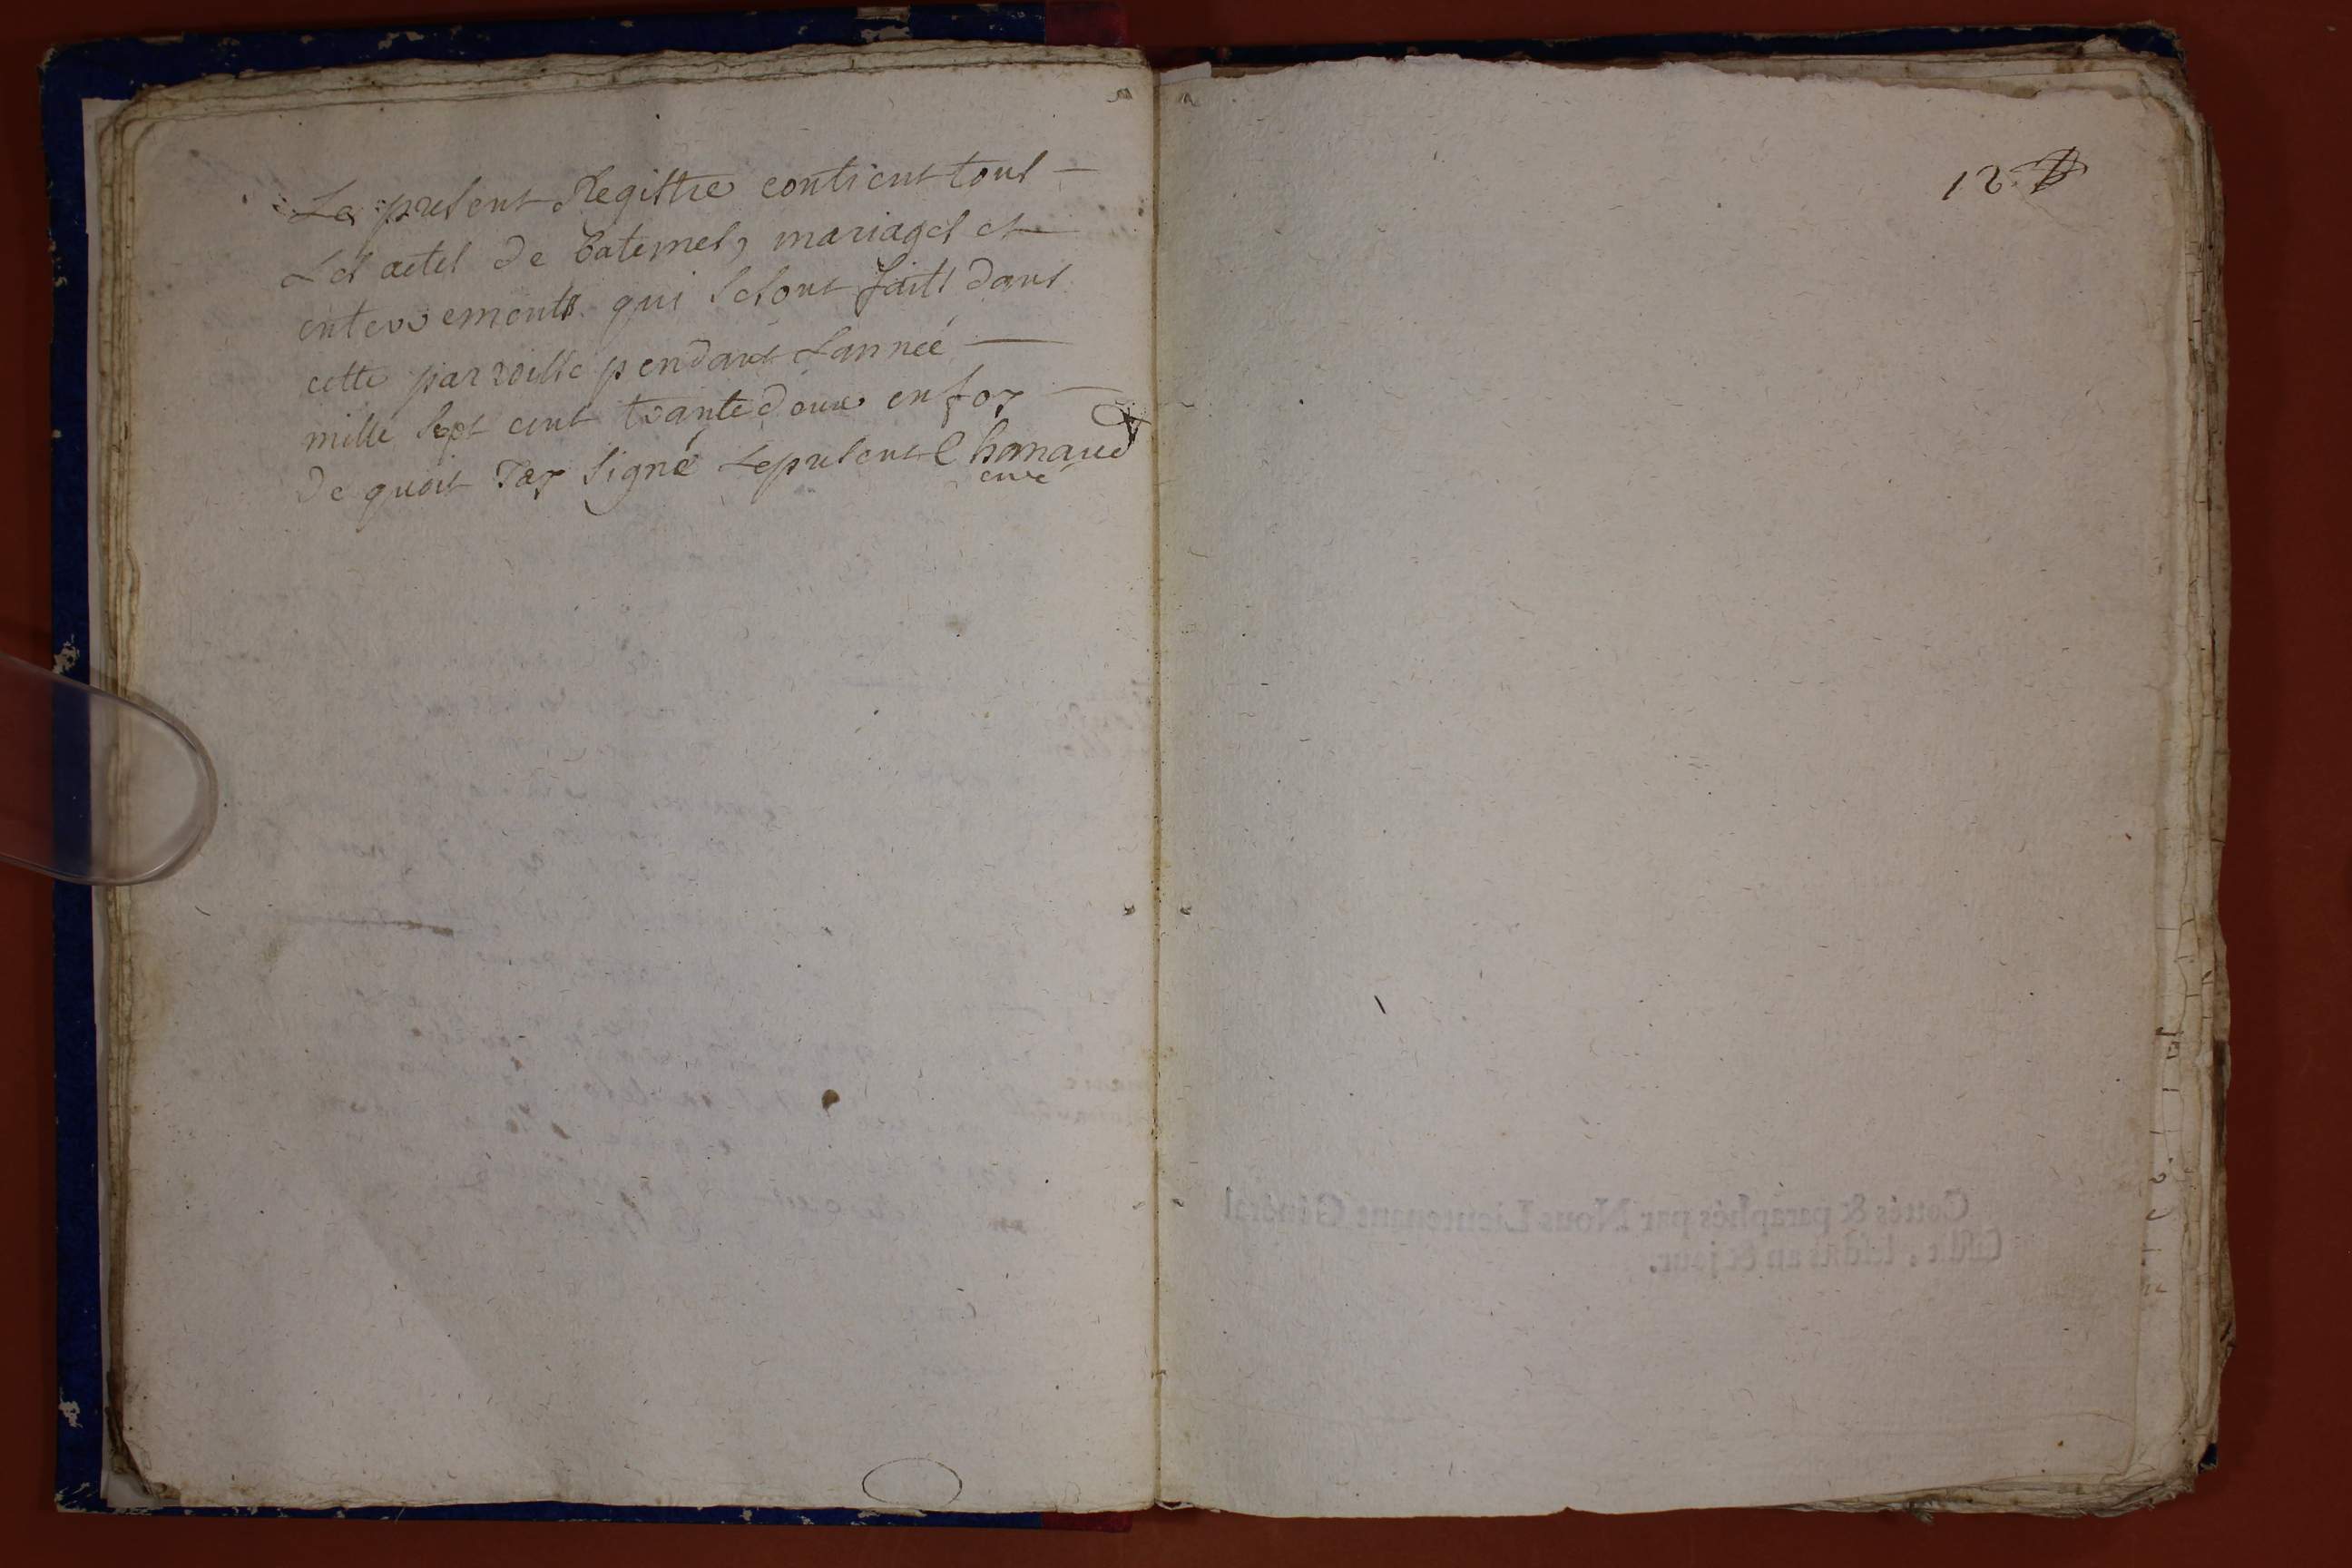 Le present Registre contient tous
Les actes de batemes, mariages et
enterrements qui se sont faits dans
cette parroisse pendant Lannée
mille sept cent trante deux en foy
de quoit Jay signé Le present Chanaud
curé
12
Cottés & paraphés par Nous Lieutenant Général
Civil, lesdits an & jour.